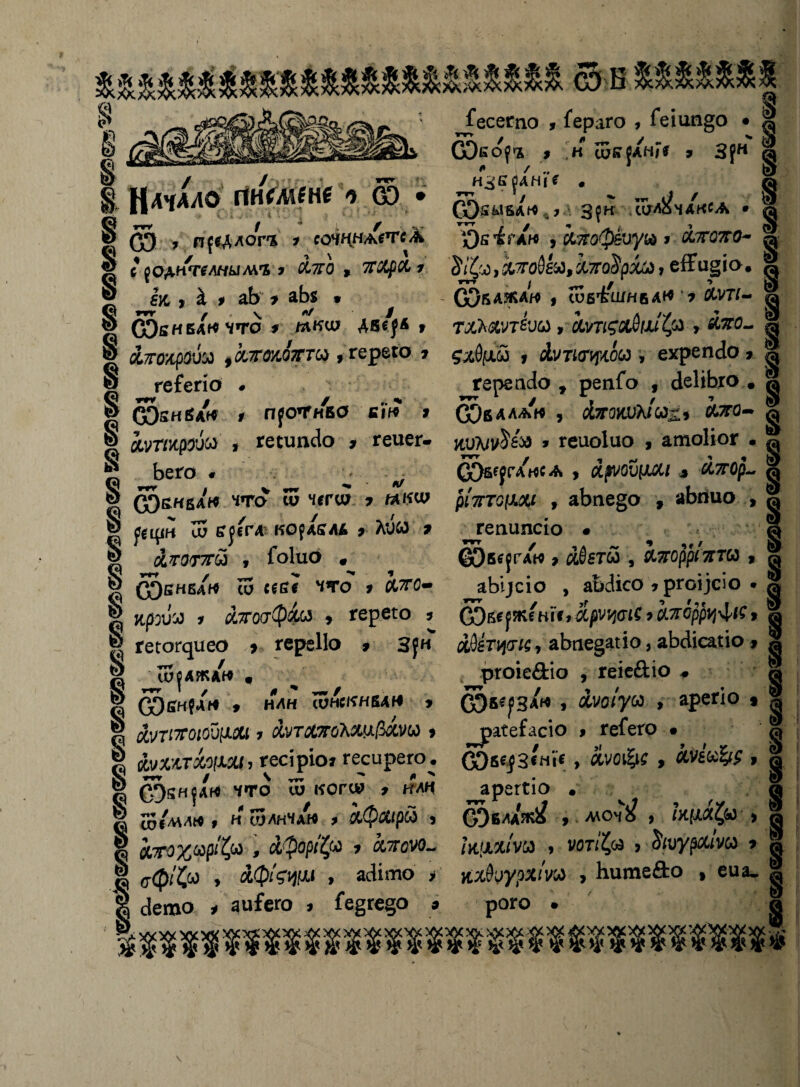 Ѿ В
Нача́ло пи́смене , Ѿ .
Ѿ , предлогъ , сочиня́етсѧ
с роди́телнымъ , ἀπὸ , παρὰ ,
ἐκ , à , ab , abs .
Ѿбива́ю что , ꙗ́кѡ две́рь ,
ἀποκρούω , ἀποκόπτω , repeto ,
referio .
Ѿбива́ю , проти́во бїю̀ ,
ἀντικρούω , retundo , reuer-
bero .
Ѿбива́ю что ѿ чегѡ̀ , ꙗ́кѡ
рещѝ ѿ бре́га кора́бль , λύω ,
ἀποσπῶ , soluo .
Ѿбива́ю ѿ себѐ что , ἀπο-
κρούω , ἀποσπάω , repeto ,
retorqueo , repello , Зрѝ
ѿража́ю .
Ѿбира́ю , и́ли ѿискива́ю ,
ἀντιποιοῦμαι , ἀνταπολαμβάνω ,
ἀνακτάομαι , recipio , recupero .
Ѿбира́ю что ѿ когѡ̀ , и́ли
ѿе́млю , и ѿлича́ю , ἀφαιρῶ ,
ἀποχωρίζω , ἀφορίζω , ἀπονο-
σφίζω , ἀφίστημι , adimo ,
demo , aufero , segrego ,
secerno , separo , seiungo .
Ѿбо́ръ , и ѿбра́нїе , Зрѝ
избра́нїе .
Ѿбыва́ю , Зрѝ ѿлуча́юсѧ .
Ѿбѣга́ю , ἀποφεύγω , ἀποπο-
δίζω , ἀποθέω , ἀποδράω , effugio .
Ѿважа́ю , ѿвѣ́шиваю , ἀντι-
ταλαντεύω , ἀντισταθμίζω , ἀπο-
σταθμῶ , ἀντισηκόω , expendo ,
rependo , penso , delibro .
Ѿвалѧ́ю , ἀποκυλίω , ἀπο-
κυλινδέω , reuoluo , amolior .
Ѿверга́юсѧ , ἀρνοῦμαι , ἀποῤ-
ῥίπτομαι , abnego , abnuo ,
renuncio .
Ѿверга́ю , ἀθετῶ , ἀποῤῥίπτω ,
abijcio , abdico , proijcio .
Ѿверже́нїе , ἄρνησις , ἀπόῤῥηψις ,
ἀθέτησις , abnegatio , abdicatio ,
proiectio , reiectio .
Ѿверза́ю , ἀνοίγω , aperio ,
patefacio , resero .
Ѿверзе́нїе , ἄνοιξις , ἀνέῳξις ,
apertio .
Ѿвлажꙋ̀ , мочꙋ̀ , ἰκμάζω ,
ἰκμαίνω , νοτίζω , διυγραίνω ,
καθυγραίνω , humecto , eua-
poro .